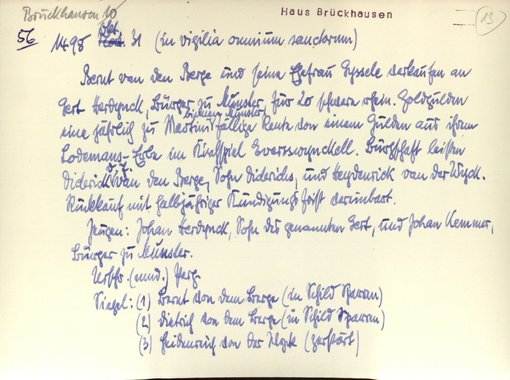 Brückhausen 10
Haus Brückhausen
13
56 1498 Okt. 31 (in vigilia omnium sanctorum)
Bernt van den Berge und seine Ehefrau Gyssele verkaufen an
Gert Herdynck, Bürger zu Münster, für 20 schwere rhein. Goldgulden
eine jährlich zu Martini fällige Rente von einem Gulden aus ihrem
Lodemans-Erbe im Kirchspiel Everswynckell. Bürgschaft leisten
Diderick van den Berge, Sohn Didericks, und Heydenrick van der Wyck.
Rückkauf mit halbjähriger Kündigungsfrist vereinbart.
Zeugen: Johan Herdynck, Sohn des genannten Gert, und Johan Kemmer,
Bürger zu Münster.
Urschr. (mnd.) Perg.
Siegel: (1) Bernt von dem Berge (in Schild Sparren)
(2) Dietrich von dem Berge (in Schild Sparren)
(3) Heidenreich von der Wyck (zerstört)